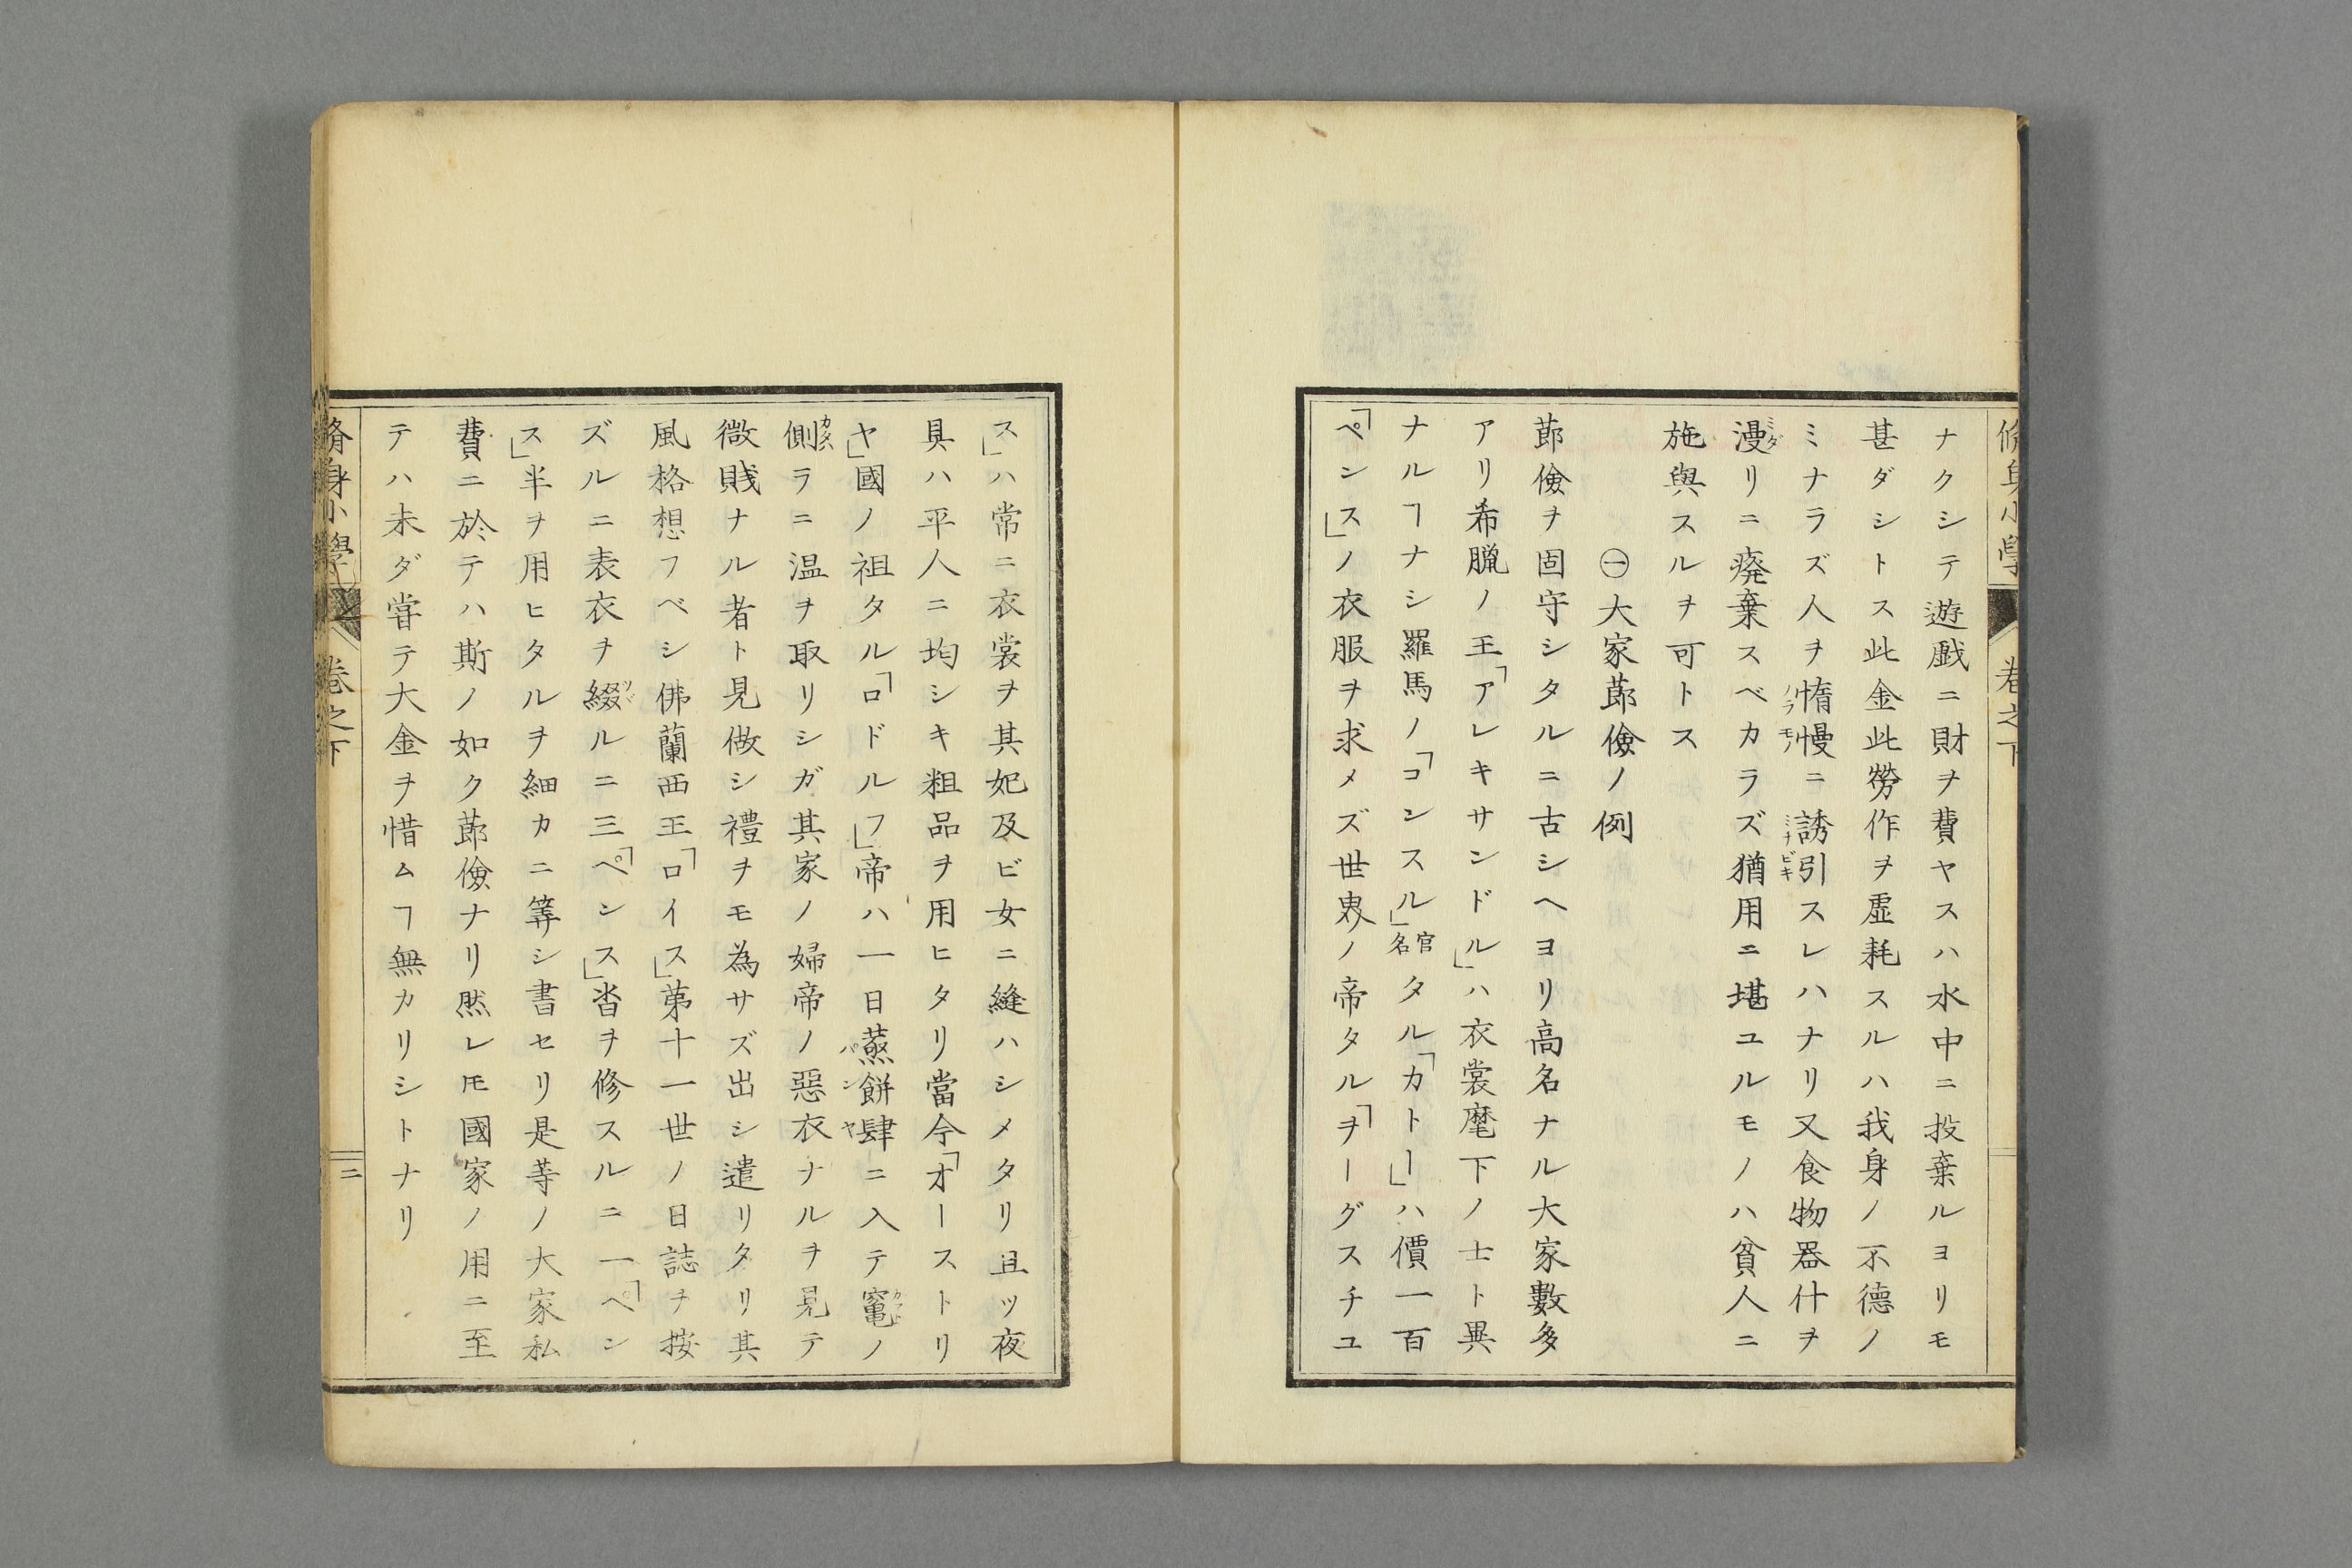 脩身小學 卷之下
ナクシテ遊戲ニ財ヲ費ヤスハ水中ニ投棄ルヨリモ
甚ダシトス此金此勞作ヲ虛耗スルハ我身ノ不德ノ
ミナラズ人ヲ惰慢ニ誘引スレハナリ又食物器什ヲ
漫リニ癈棄スベカラズ猶用ニ堪ユルモノハ貧人ニ
施與スルヲ可トス
㊀大家莭儉ノ例
莭儉ヲ固守シタルニ古シヘヨリ高名ナル大家數多
アリ希臘ノ王「アレキサンドル」ハ衣裳麾下ノ士ト異
ナルヿナシ羅馬ノ「コンスル」官名タル「カトー」ハ價一百
「ペンス」ノ衣服ヲ求メズ世界ノ帝タル「ヲーグスチユ
ス」ハ常ニ衣裳ヲ其妃及ビ女ニ縫ハシメタリ且ツ夜
具ハ平人ニ均シキ粗品ヲ用ヒタリ當今「オーストリ
ヤ」國ノ祖タル「ロドルフ」帝ハ一日蒸餅肆ニ入テ竃ノ
側ラニ温ヲ取リシガ其家ノ婦帝ノ惡衣ナルヲ見テ
微賤ナル者ト見做シ禮ヲモ為サズ出シ遣リタリ其
風格想フベシ佛蘭西王「ロイス」苐十一世ノ日誌ヲ按
ズルニ表衣ヲ綴ルニ三「ペンス」沓ヲ修スルニ一「ペン
ス」半ヲ用ヒタルヲ細カニ筭シ書セリ是等ノ大家私
費ニ於テハ斯ノ如ク莭儉ナリ然レ𪜈國家ノ用ニ至
テハ未ダ甞テ大金ヲ惜ムヿ無カリシトナリ
脩身小學 卷之下 二